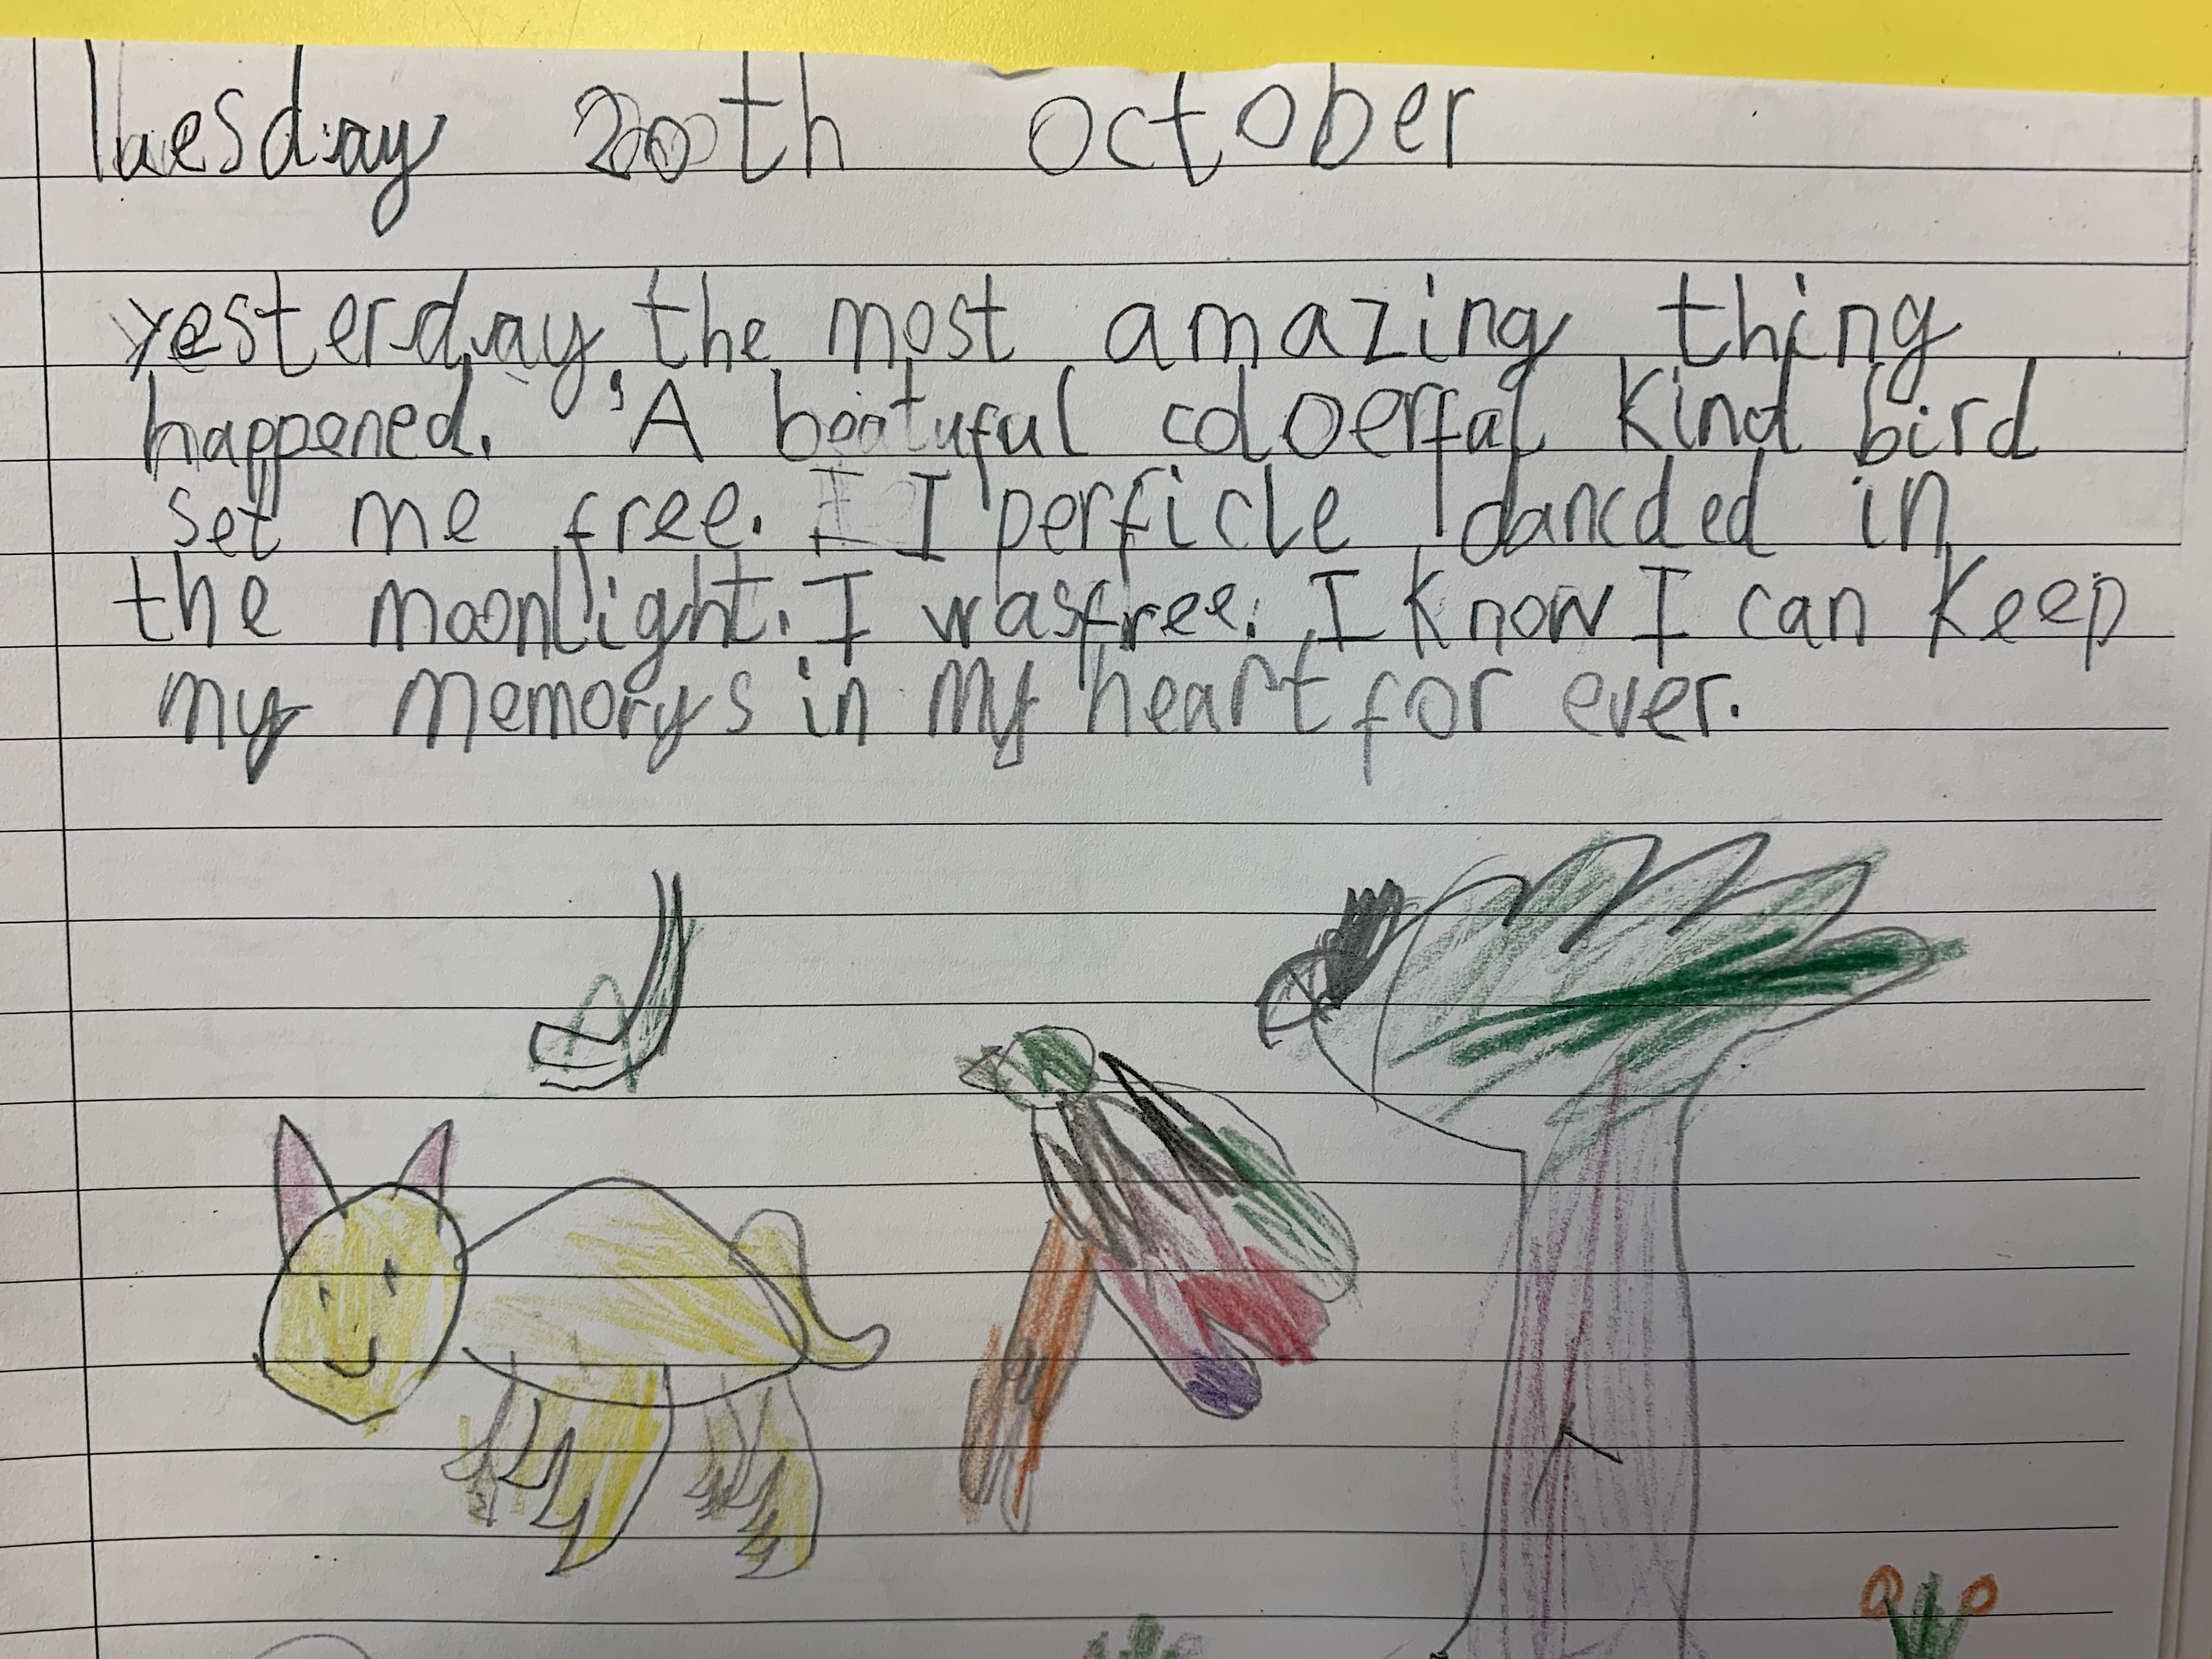 Tuesday 20th October
yesterday, the most amazing thing
happened. A beatuful coloerful kind bird
set me free. I I perficle dancded in
the moonlight. I was free. I know I can keep
my memorys in my heart for ever.